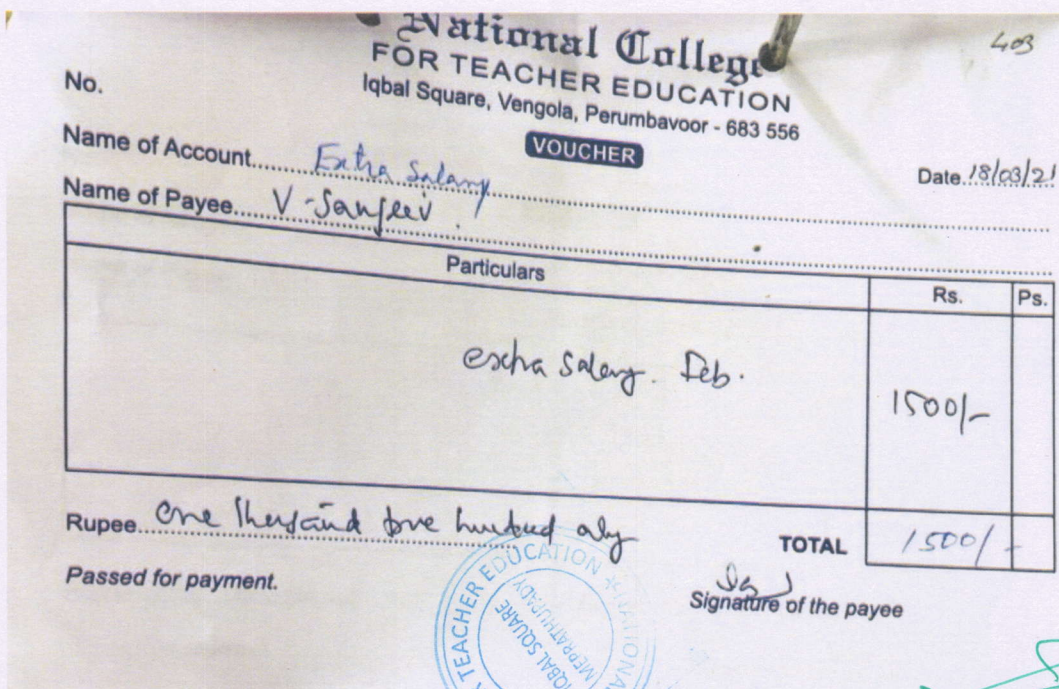 National College
403
FOR TEACHER EDUCATION
Iqbal Square, Vengola, Perumbavoor - 683 556
No.
VOUCHER
Name of Account Extra Salary
Date 18/03/21
Name of Payee V. Sanjeev
Particulars Rs. Ps.
extra salary. Feb. 1500/-
Rupee one thousand five hundred only
TOTAL 1500/-
Passed for payment.
Signature of the payee
TEACHER EDUCATION ★ NATIONAL
IQBAL SQUARE
MEPRATHUPADY